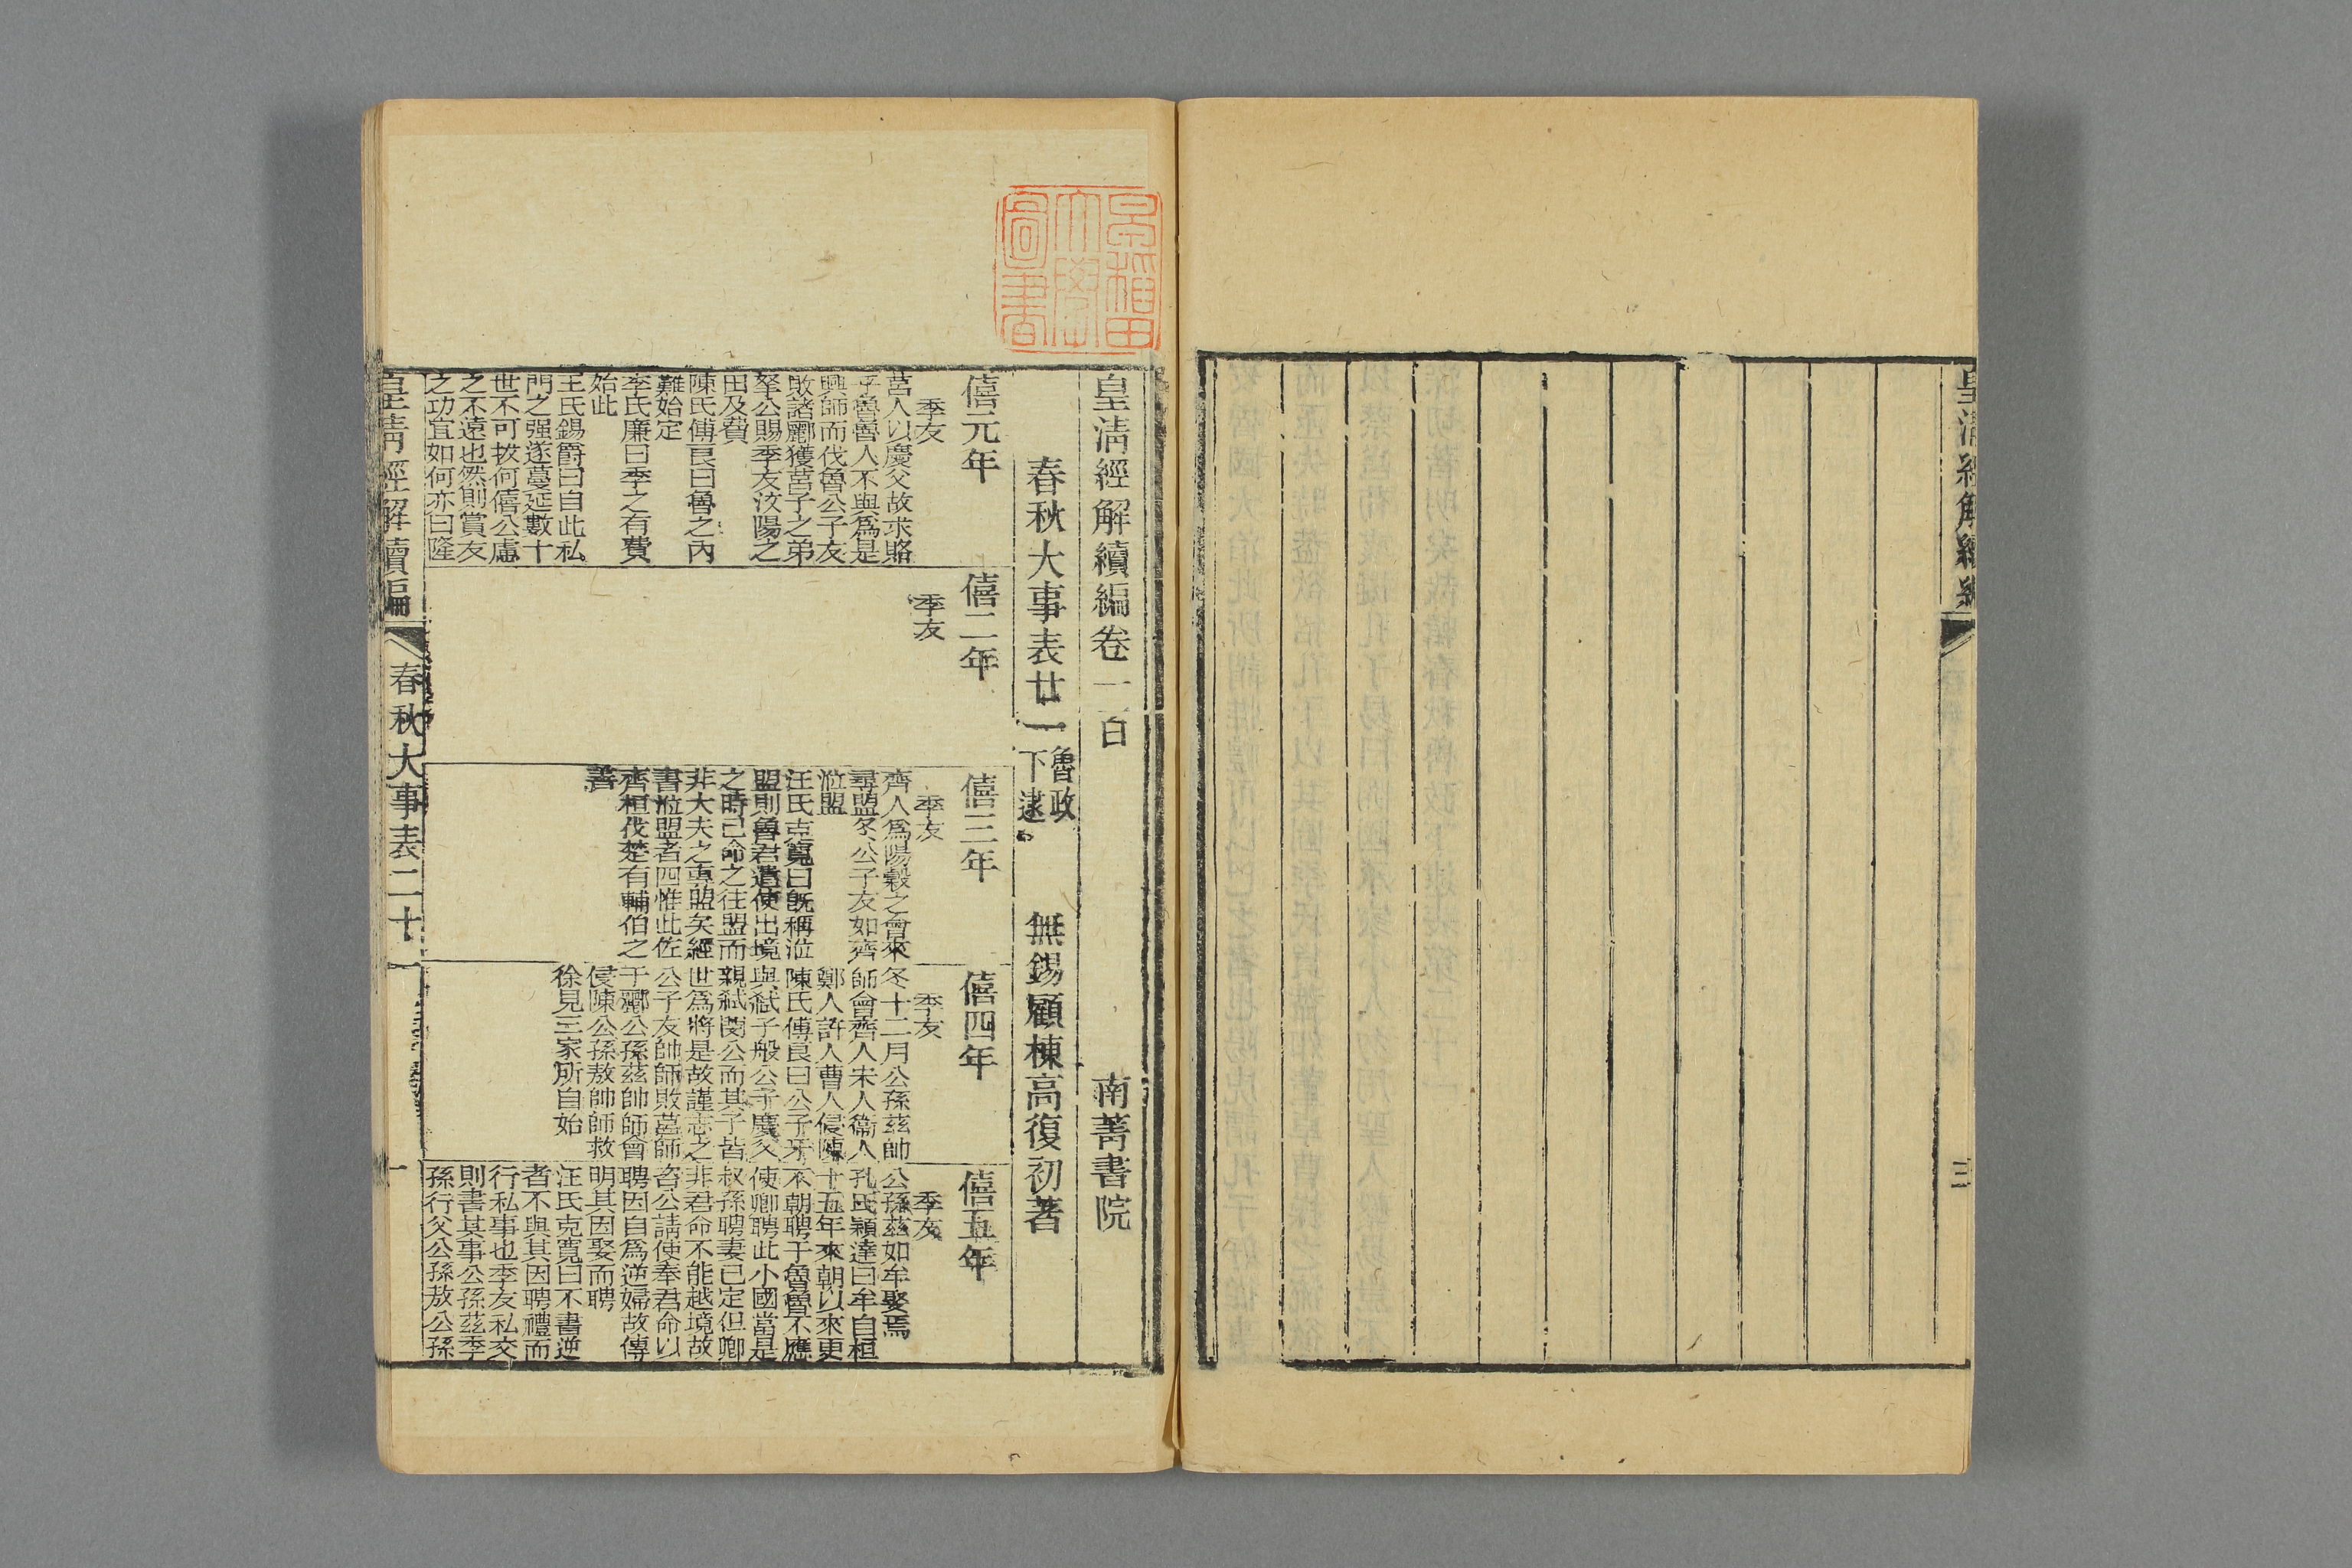 皇清經解續編
三
早稻田
大學
圖書
皇清經解續編卷一百
南菁書院
春秋大事表廿一
魯政
下逮
無錫顧棟高復初著
僖元年
季友
莒人以慶父故求賂
于魯魯人不與爲是
興師而伐魯公子友
敗諸酈獲莒子之弟
挐公賜季友汶陽之
田及費
陳氏傅良曰魯之內
難始定
季氏廉曰季之有費
始此
王氏錫爵曰自此私
門之强遂蔓延數十
世不可拔何僖公慮
之不遠也然則賞友
之功宜如何亦曰隆
僖二年
季友
僖三年
季友
齊人爲陽穀之會來
尋盟冬公子友如齊
涖盟
汪氏克寬曰旣稱涖
盟則魯君遣使出境
之時已命之往盟而
非大夫之專盟矣經
書涖盟者四惟此佐
齊桓伐楚有輔伯之
善
僖四年
季友
冬十二月公孫茲帥
師會齊人宋人衞人
鄭人許人曹人侵陳
陳氏傅良曰公子牙
與弑子般公子慶父
親弑閔公而其子皆
世爲將是故謹志之
公子友帥師敗莒師
于酈公孫茲帥師會
侵陳公孫敖帥師救
徐見三家所自始
僖五年
季友
公孫茲如牟娶焉
孔氏穎達曰牟自桓
十五年來朝以來更
不朝聘于魯魯不應
使卿聘此小國當是
叔孫聘妻已定但卿
非君命不能越境故
咨公請使奉君命以
聘因自爲逆婦故傳
明其因娶而聘
汪氏克寬曰不書逆
者不與其因聘禮而
行私事也季友私交
則書其事公孫茲季
孫行父公孫敖公孫
皇清經解續編
春秋大事表二十一
一